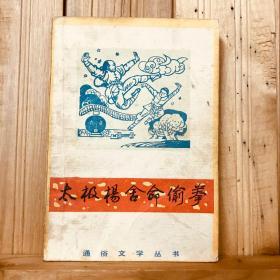 太极楊舍命偷拳
通俗文学丛书